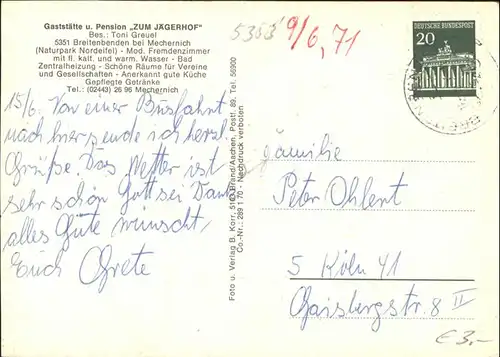 Gaststätte u. Pension „ZUM JÄGERHOF"
Bes.: Toni Greuel
5351 Breitenbenden bei Mechernich
(Naturpark Nordeifel) - Mod. Fremdenzimmer
mit fl. kalt. und warm. Wasser - Bad
Zentralheizung - Schöne Räume für Vereine
und Gesellschaften - Anerkannt gute Küche
Gepflegte Getränke
Tel.: (02443) 26 96 Mechernich
15/6. Von einer Busfahrt
nach hier sende ich herzl.
Grüße. Das Wetter ist
sehr schön Gott sei Dank
alles Gute wünscht,
Euch Grete
Foto u. Verlag B. Korr, 5103 Brand/Aachen, Postf. 89, Tel. 56900
Co.-Nr.: 289 1 70 - Nachdruck verboten
5353
9/6, 71
DEUTSCHE BUNDESPOST
20
Familie
Peter Ohlent
5 Köln 41
Gaisbergstr. 8 II
€ 3,-